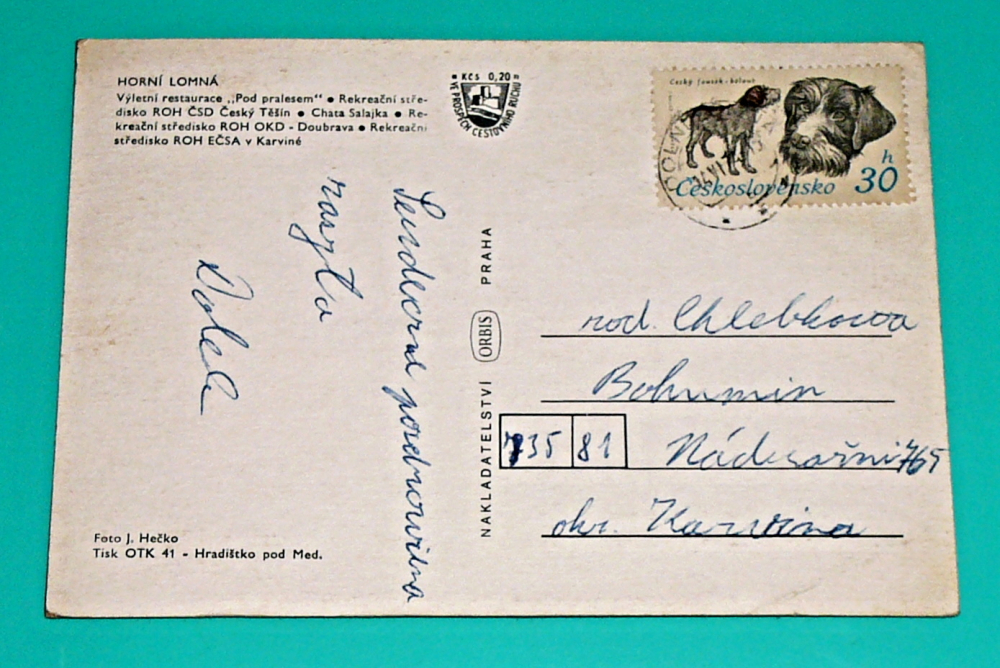 HORNÍ LOMNÁ
Výletní restaurace „Pod pralesem" ● Rekreační stře-
disko ROH ČSD Český Těšín ● Chata Salajka ● Re-
kreační středisko ROH OKD - Doubrava ● Rekreační
středisko ROH EČSA v Karviné
KČS 0,20
VE PROSPĚCH CESTOVNÍHO RUCHU
Český fousek-kolouš
Československo 30 h
Serdecne pozdrowienia
zasyła
NAKLADATELSTVÍ ORBIS PRAHA
rod. Chlebkowa
Bohumin
735 81 Nádražni 765
okr. Karvina
Foto J. Hečko
Tisk OTK 41 - Hradištko pod Med.